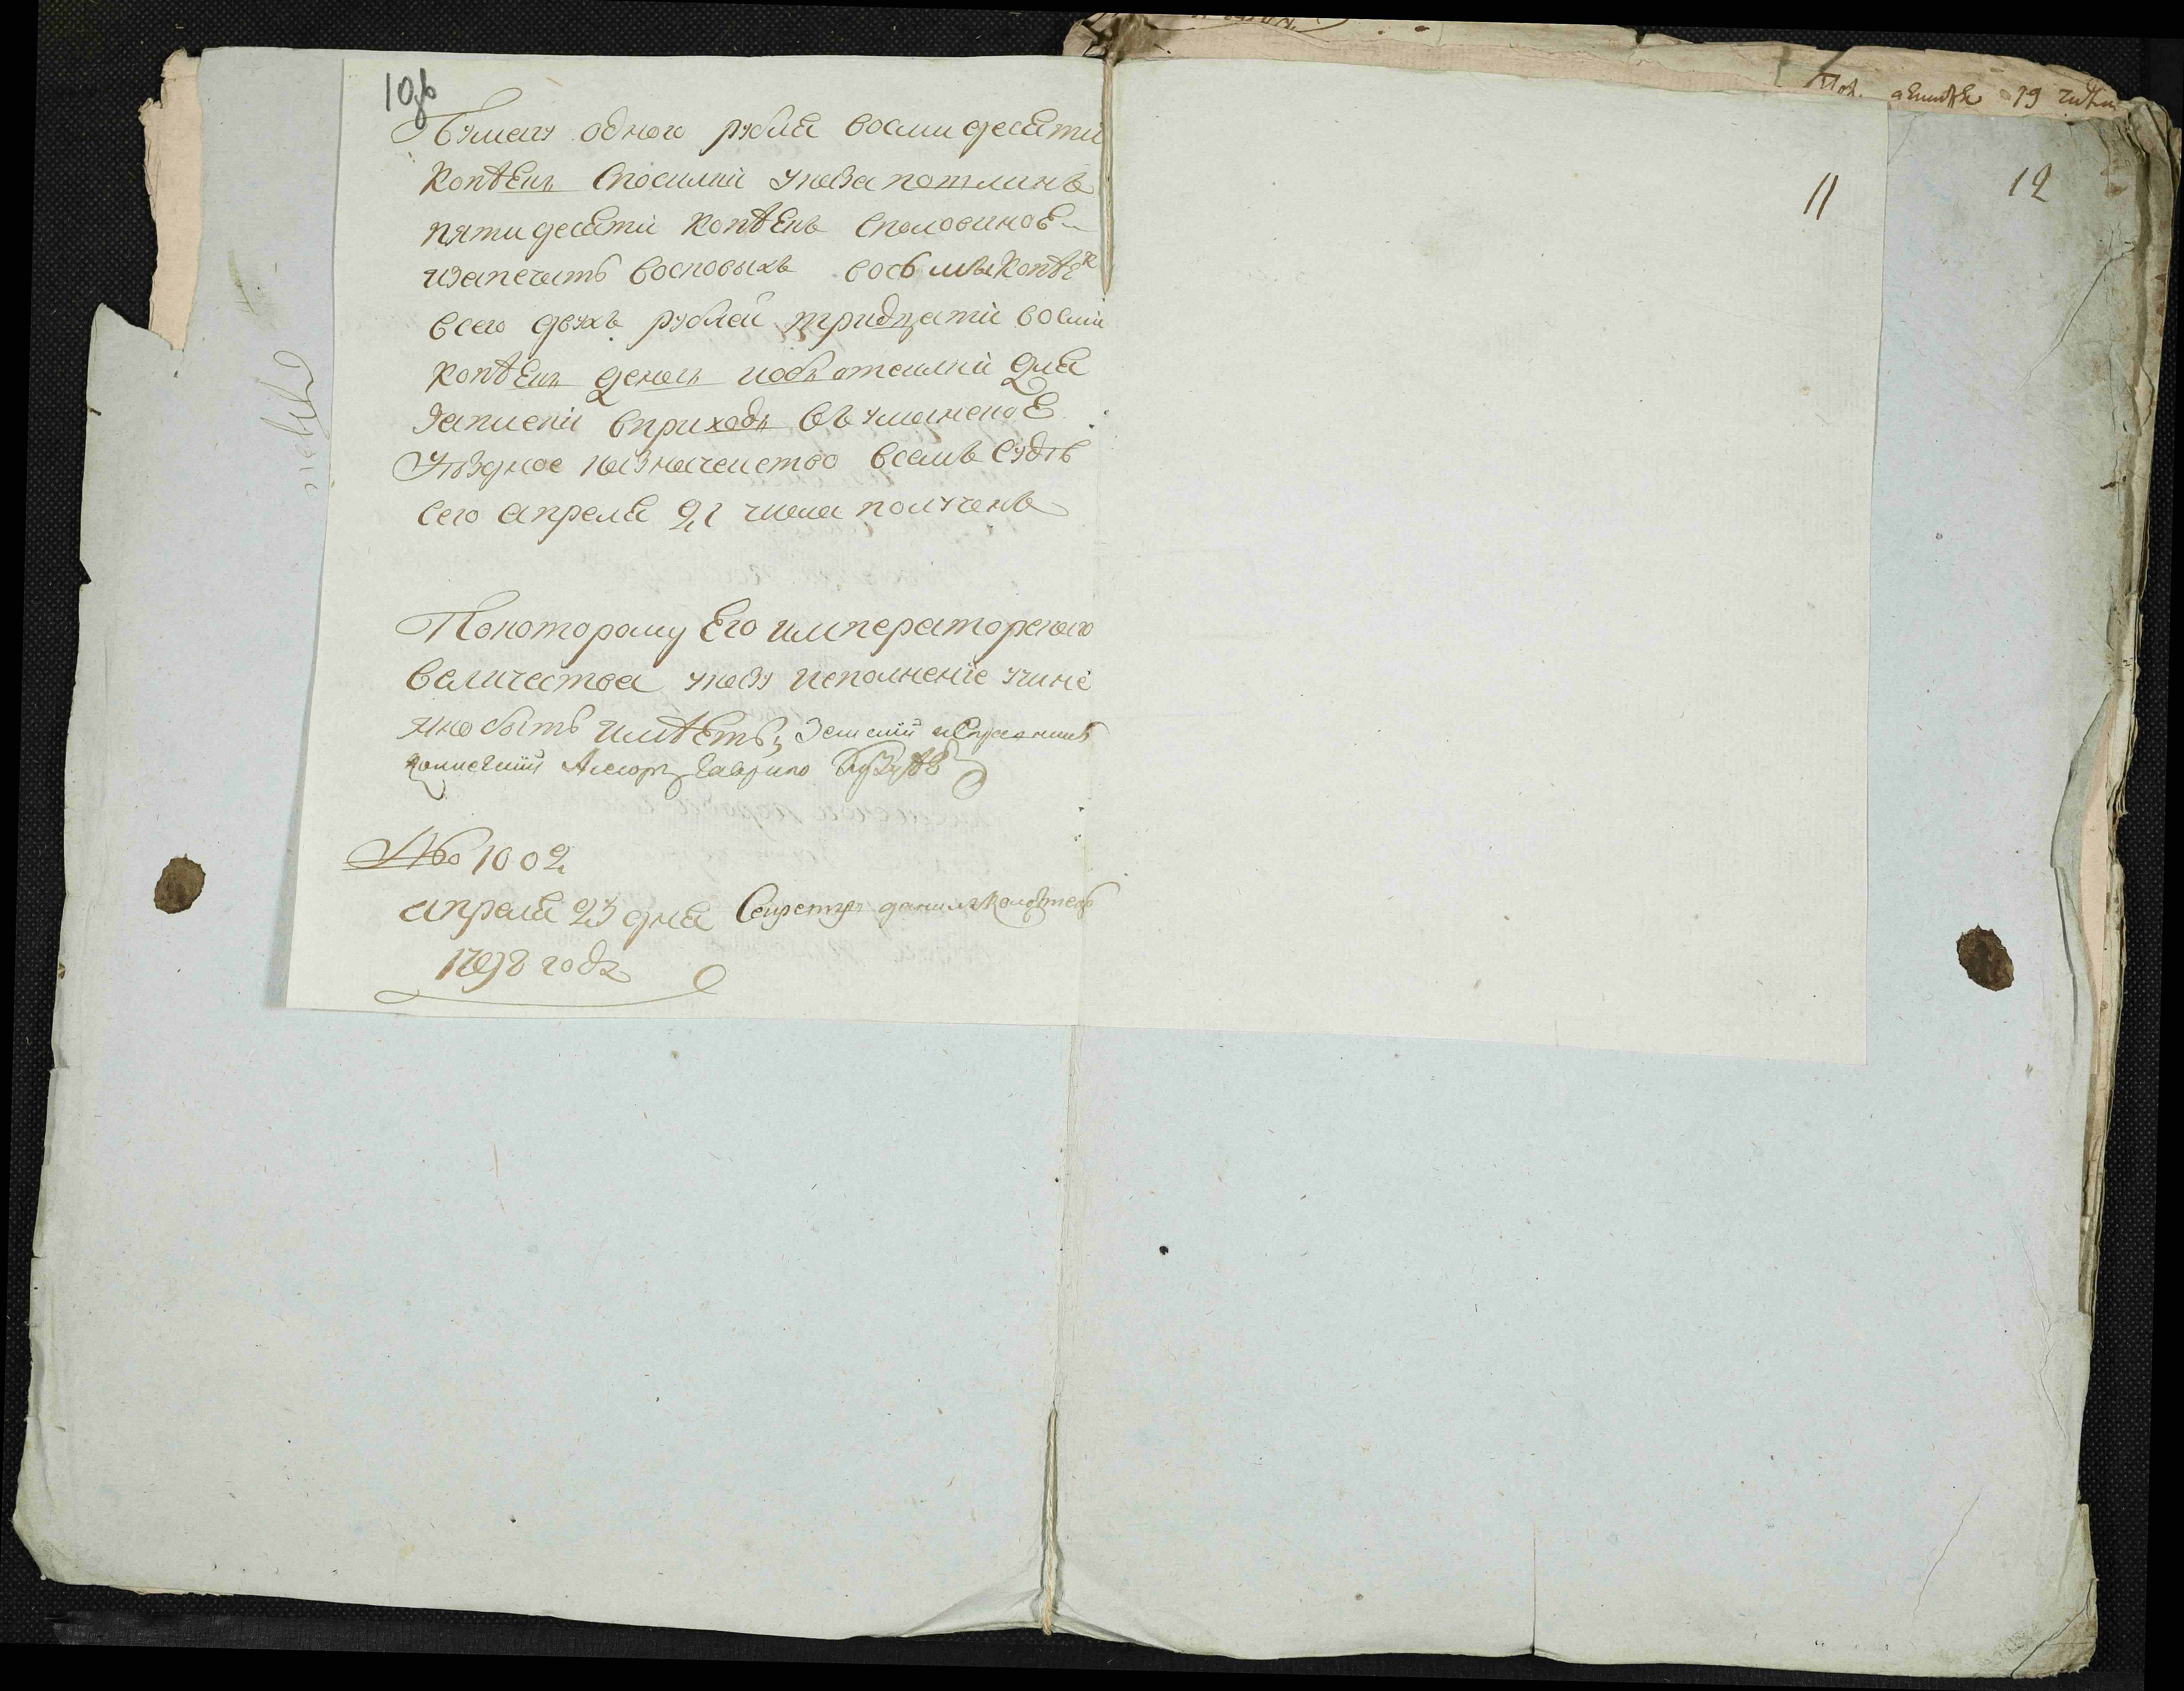 10об
бумагу одного рубля восмидесяти
копѣекъ спосилки указа пошлинъ
пятидесяти копѣекъ споловиною
изапечать восковыхъ восьмы копѣекъ
всего двухъ рублей тридцати восми
копѣекъ денегъ иобъ отсылки для
записки вприходъ въ уманское
уѣздное казначейство всемъ судѣ
сего апреля 21 числа полученъ
Покоторому Его императорского
величества указу исполненіе учине
но быть имѣетъ, Земский исправникъ
колиский Асесоръ Гаврило
№ 1002
апреля 23 дня Секретарь данило
1798 года
11
12
19